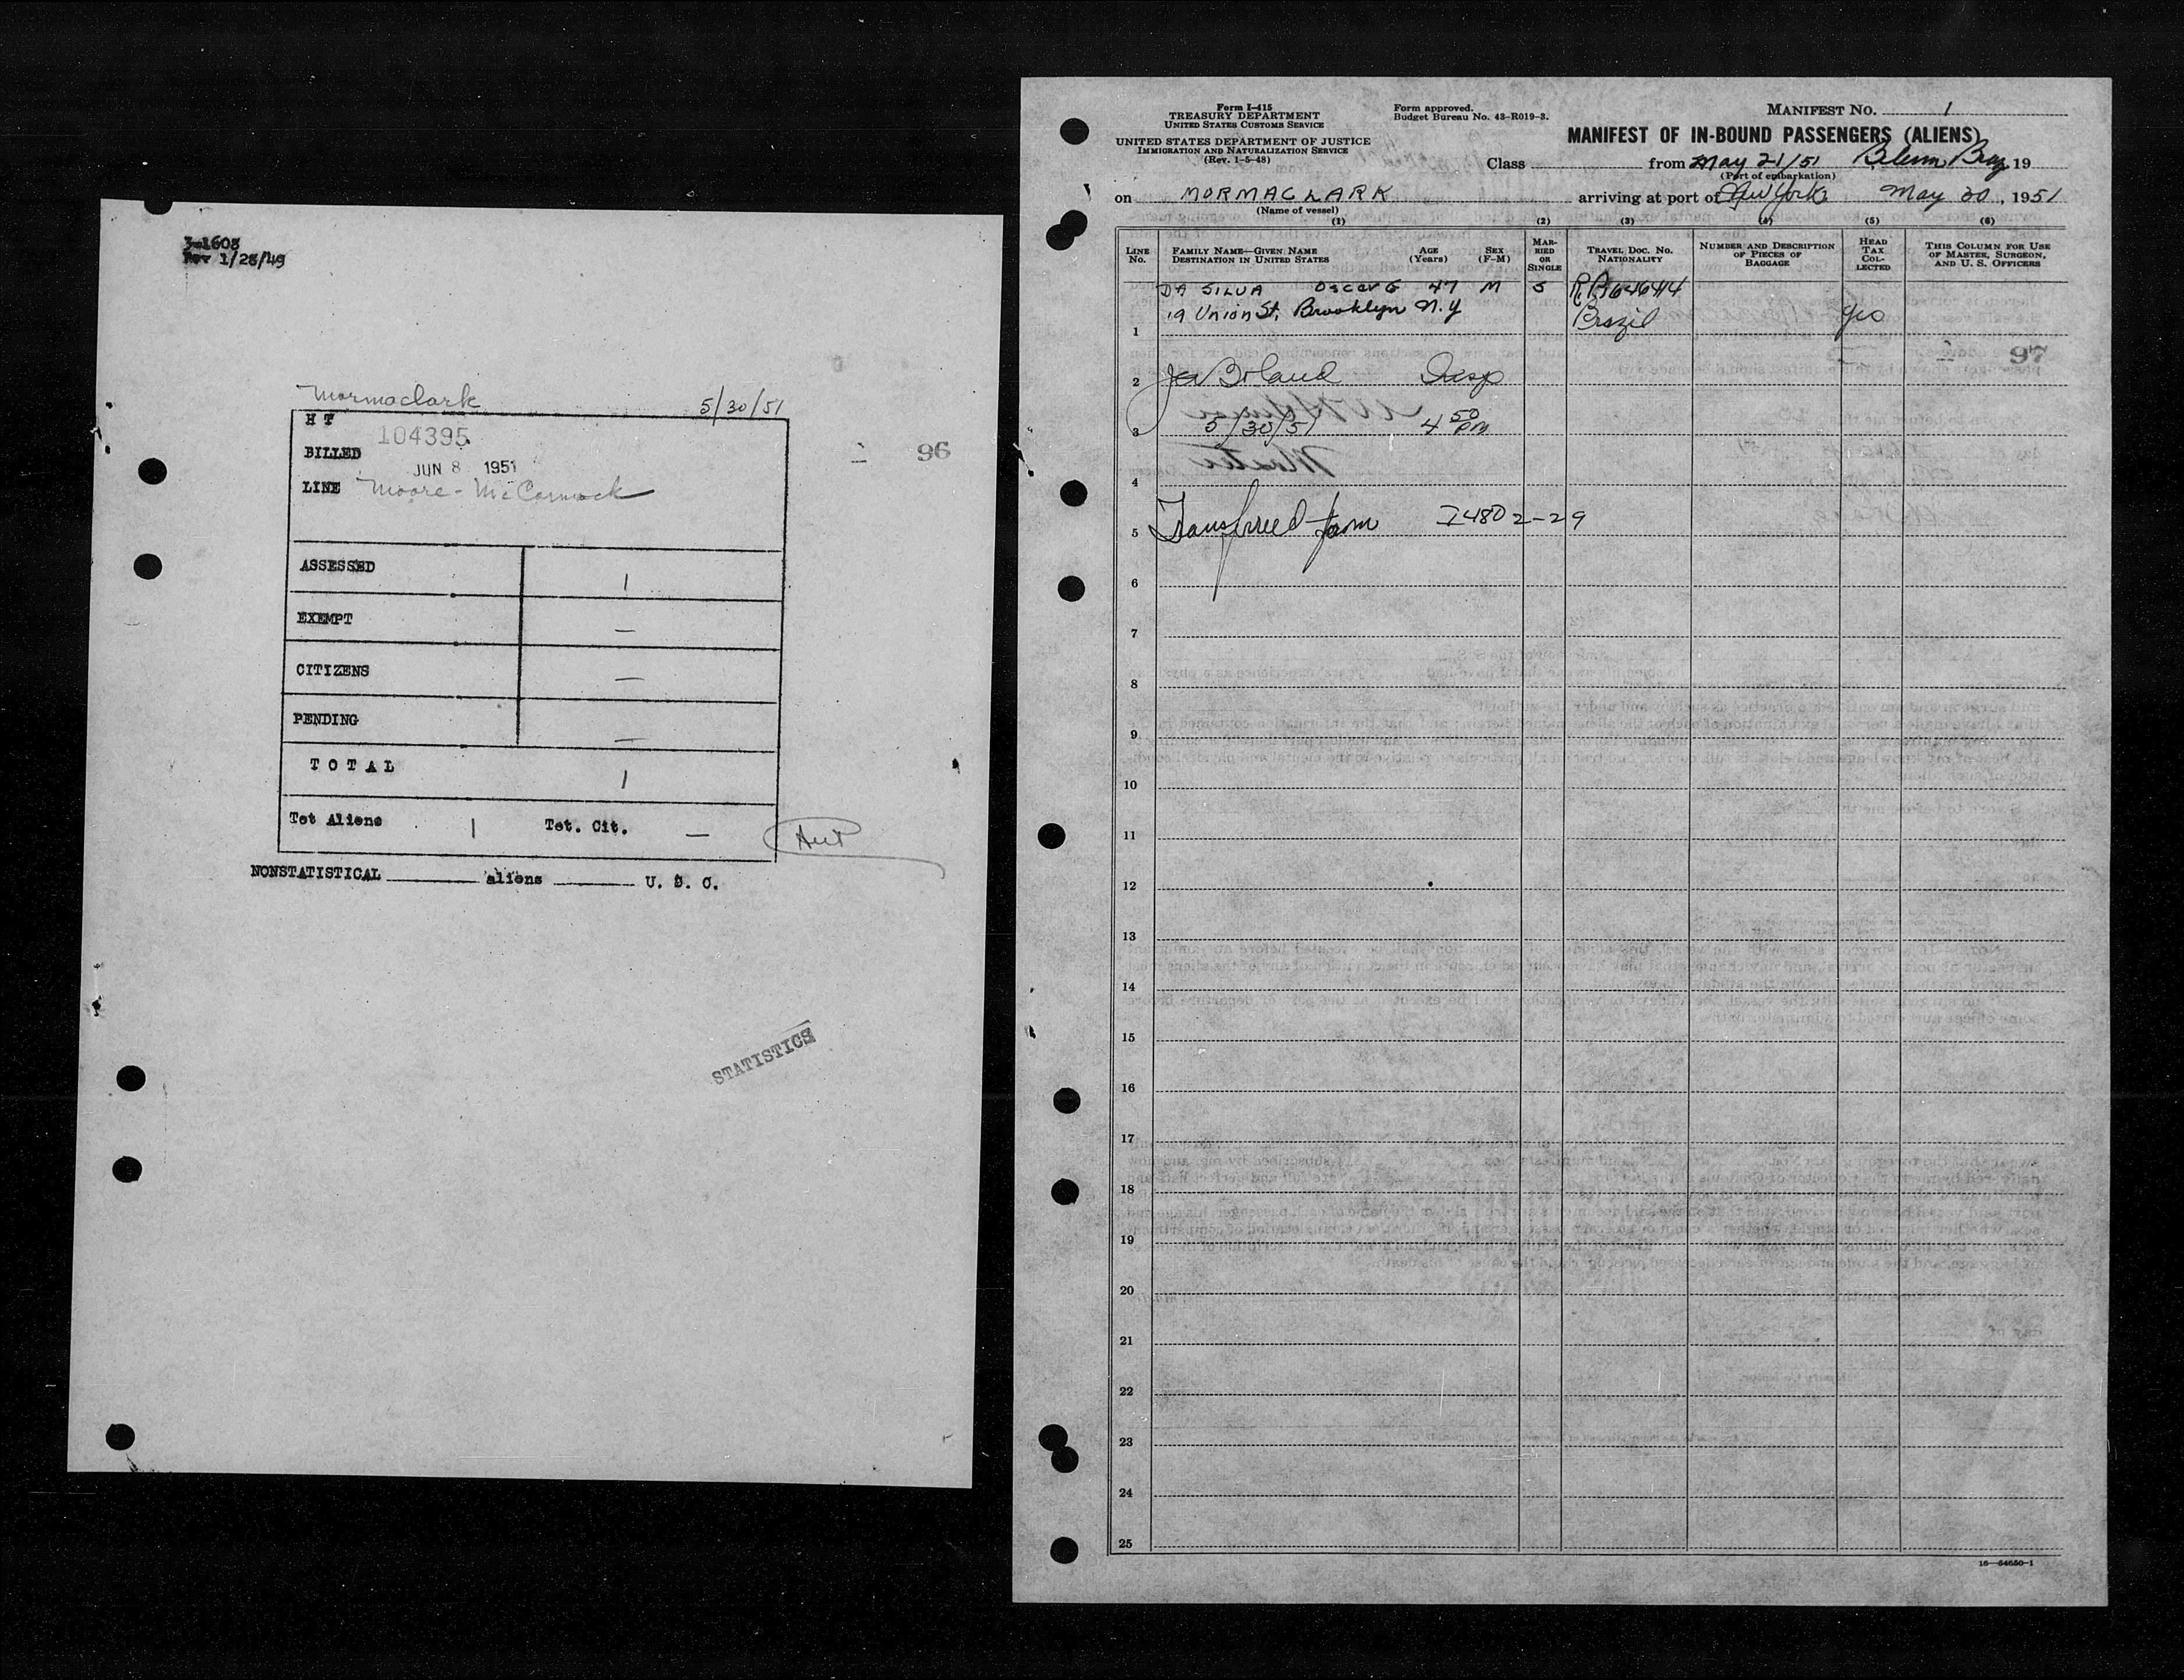 3-1608
Rev 1/28/49
Mormaclark 5/30/51
H T
104395
BILLED
JUN 8 1951
LINE Moore-McCormack
96
ASSESSED 1
EXEMPT —
CITIZENS —
PENDING —
T O T A L 1
Tot Aliens 1 Tot. Cit. —
NONSTATISTICAL ______ aliens ______ U. S. C.
STATISTICS
Form I-415
TREASURY DEPARTMENT
UNITED STATES CUSTOMS SERVICE
UNITED STATES DEPARTMENT OF JUSTICE
IMMIGRATION AND NATURALIZATION SERVICE
(Rev. 1-5-48)
Form approved.
Budget Bureau No. 43-R019-3.
MANIFEST NO. 1
MANIFEST OF IN-BOUND PASSENGERS (ALIENS)
Class from May 21/51 Belem Braz, 19
(Port of embarkation)
on MORMACLARK arriving at port of New York May 30, 1951
(Name of vessel)
(1) (2) (3) (4) (5) (6)
LINE No. FAMILY NAME—GIVEN NAME DESTINATION IN UNITED STATES AGE (Years) SEX (F-M) MARRIED OR SINGLE TRAVEL DOC. NO. NATIONALITY NUMBER AND DESCRIPTION OF PIECES OF BAGGAGE HEAD TAX COLLECTED THIS COLUMN FOR USE OF MASTER, SURGEON, AND U. S. OFFICERS
DA SILVA Oscar G 47 M S R.P. 646414
19 Union St. Brooklyn N.Y Brazil yes
1
97
2 Boland Insp
3 5/30/51 4 50 PM
4
5 Transferred from I 480 2-29
6
7
8
9
10
11
12
13
14
15
16
17
18
19
20
21
22
23
24
25
16—54650-1